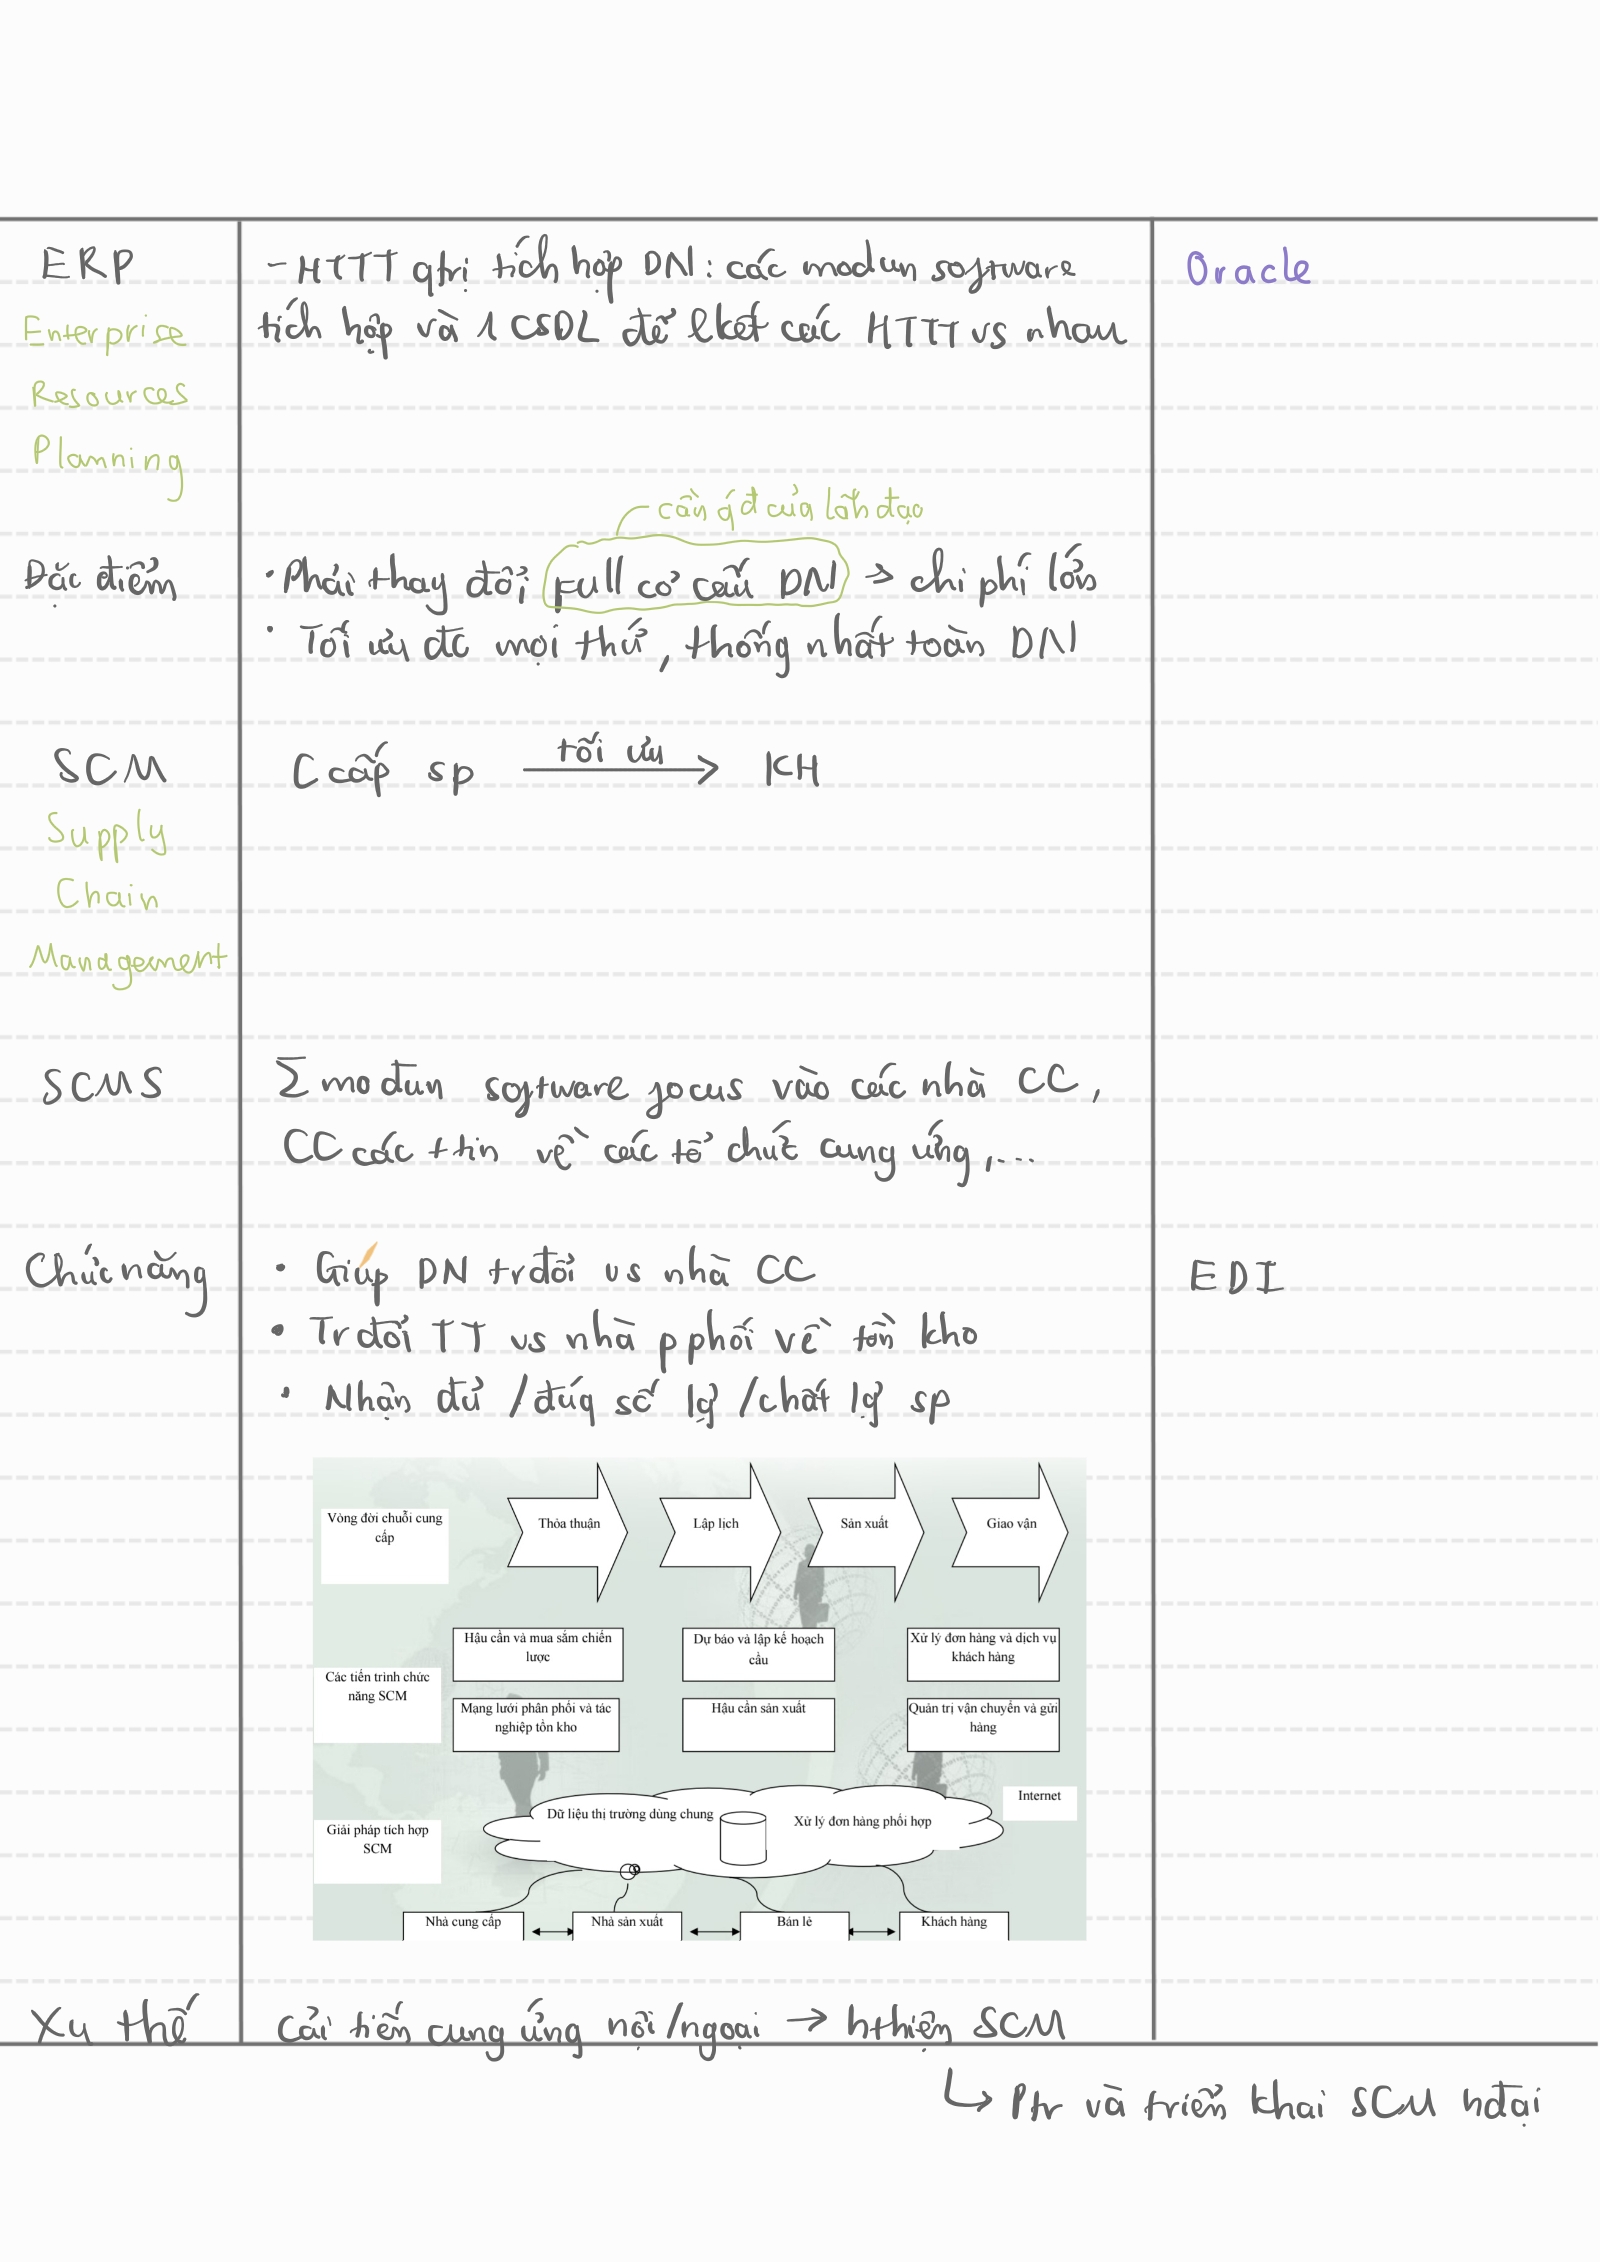 ERP
Enterprise
Resources
Planning
- HTTT qtrị tích hợp DN: các modun software
tích hợp và 1 CSDL để lkết các HTTT vs nhau
Oracle
cần qđ của lãnh đạo
Đặc điểm
• Phải thay đổi full cơ cấu DN → chi phí lớn
• Tối ưu đc mọi thứ, thống nhất toàn DN
SCM
Supply
Chain
Management
C cấp sp tối ưu → KH
SCMS
Σ mođun software focus vào các nhà CC,
CC các ttin về các tổ chức cung ứng,...
Chức năng
• Giúp DN trđổi vs nhà CC
EDI
• Trđổi TT vs nhà pphối về tồn kho
• Nhận đủ /đúg số lg /chất lg sp
Vòng đời chuỗi cung
cấp
Thỏa thuận
Lập lịch
Sản xuất
Giao vận
Các tiến trình chức
năng SCM
Hậu cần và mua sắm chiến
lược
Dự báo và lập kế hoạch
cầu
Xử lý đơn hàng và dịch vụ
khách hàng
Mạng lưới phân phối và tác
nghiệp tồn kho
Hậu cần sản xuất
Quản trị vận chuyển và gửi
hàng
Giải pháp tích hợp
SCM
Dữ liệu thị trường dùng chung
Xử lý đơn hàng phối hợp
Internet
Nhà cung cấp
Nhà sản xuất
Bán lẻ
Khách hàng
Xu thế
Cải tiến cung ứng nội/ngoại → hthiện SCM
↳ Ptr và triển khai SCM hđại